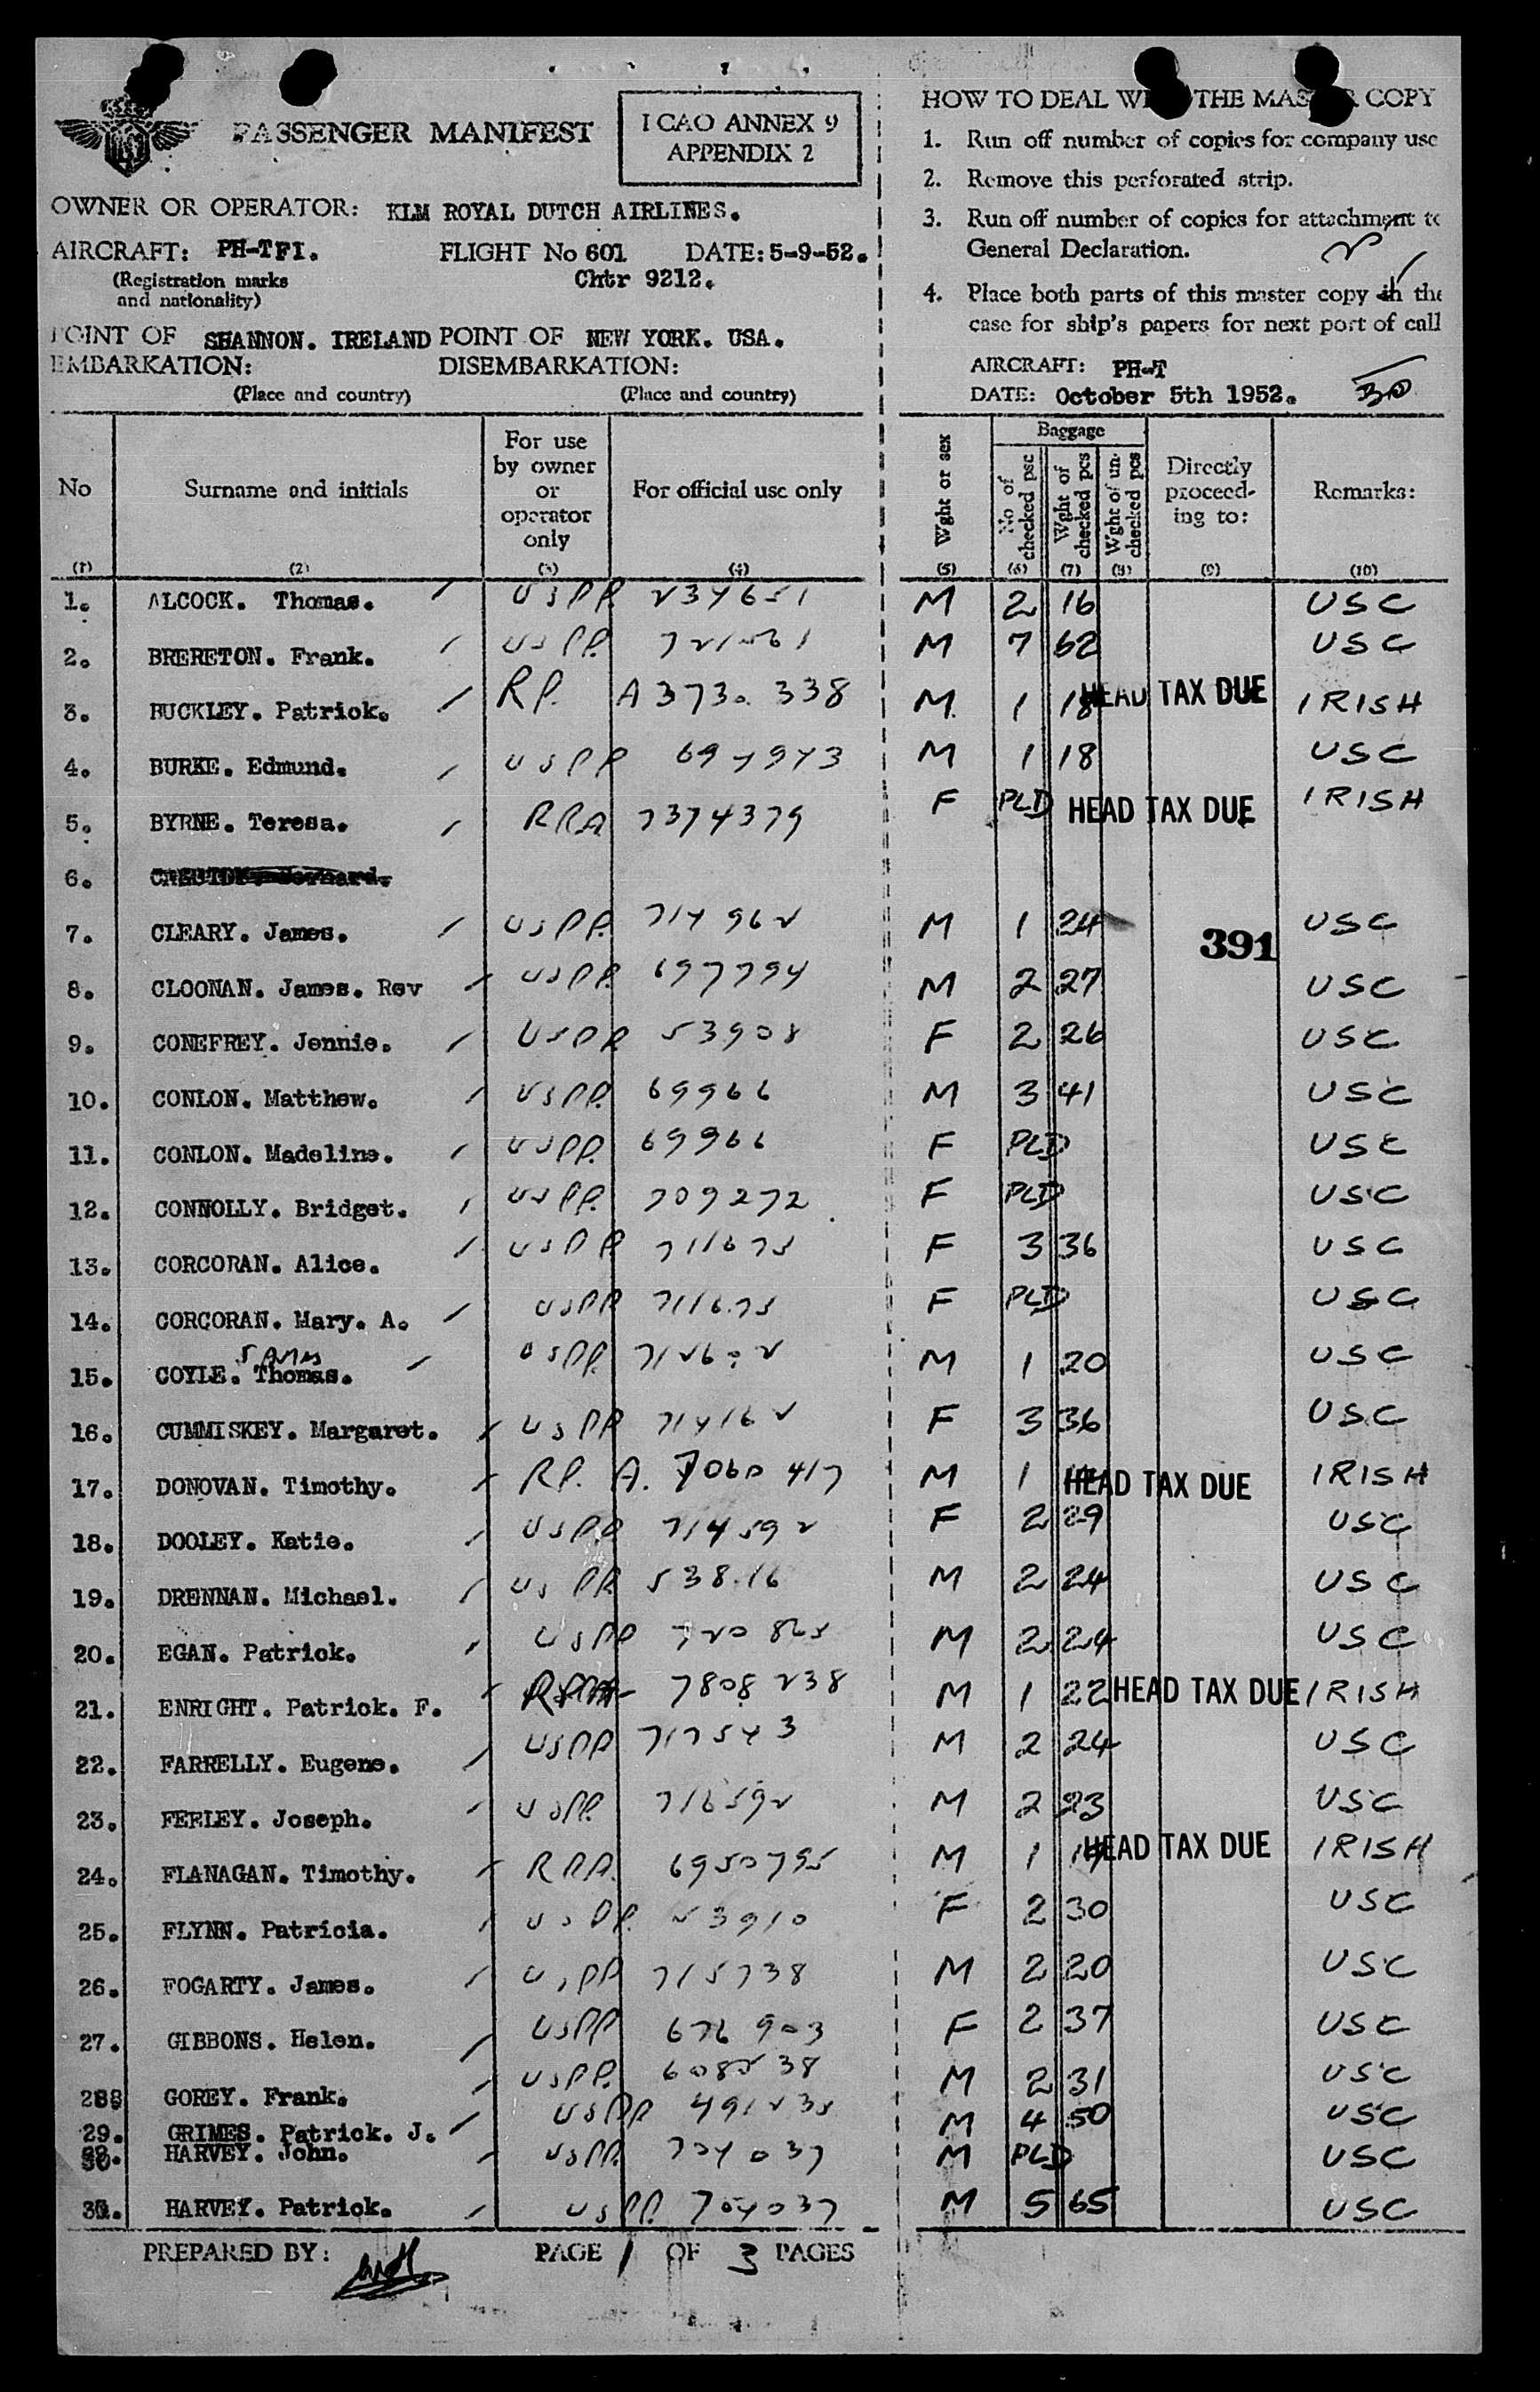 PASSENGER MANIFEST
I CAO ANNEX 9
APPENDIX 2
OWNER OR OPERATOR: KLM ROYAL DUTCH AIRLINES.
AIRCRAFT: PH-TFI. FLIGHT No 601 DATE: 5-9-52.
(Registration marks
and nationality)
Chtr 9212.
POINT OF SHANNON. IRELAND POINT OF NEW YORK. USA.
EMBARKATION: DISEMBARKATION:
(Place and country) (Place and country)
HOW TO DEAL THE COPY
1. Run off number of copies for company use
2. Remove this perforated strip.
3. Run off number of copies for attachment to
General Declaration.
4. Place both parts of this master copy in the
case for ship's papers for next port of call
AIRCRAFT: PH-T
DATE: October 5th 1952.
No Surname and initials For use by owner or operator only For official use only Wght or sex Baggage No of checked psc Wght of checked pcs Wght of un-checked pcs Directly proceed-ing to: Remarks:
(1) (2) (3) (4) (5) (6) (7) (8) (9) (10)
1. ALCOCK. Thomas. USPP. 234651 M 2 16 USC
2. BRERETON. Frank. USPP. M 7 62 USC
3. BUCKLEY. Patrick. RP. A 3730 338 M 1 18 HEAD TAX DUE IRISH
4. BURKE. Edmund. USPP M 1 18 USC
5. BYRNE. Teresa. RRA 7374379 F PLD HEAD TAX DUE IRISH
6.
7. CLEARY. James. USPP. 714962 M 1 24 USC
391
8. CLOONAN. James. Rev USPP. 697794 M 2 27 USC
9. CONEFREY. Jennie. USPP 53908 F 2 26 USC
10. CONLON. Matthew. USPP. 69966 M 3 41 USC
11. CONLON. Madeline. USPP. 69966 F PLD USC
12. CONNOLLY. Bridget. USPP. 709272 F PLD USC
13. CORCORAN. Alice. USPP 711675 F 3 36 USC
14. CORCORAN. Mary. A. USPP 711675 F PLD USC
15. COYLE. Thomas. USPP. 712602 M 1 20 USC
16. CUMMISKEY. Margaret. USPP 714162 F 3 36 USC
17. DONOVAN. Timothy. RP. A. 7060 417 M 1 HEAD TAX DUE IRISH
18. DOOLEY. Katie. USPP 714592 F 2 29 USC
19. DRENNAN. Michael. USPP 53816 M 2 24 USC
20. EGAN. Patrick. USPP 720865 M 2 24 USC
21. ENRIGHT. Patrick. F. 7808 238 M 1 22 HEAD TAX DUE IRISH
22. FARRELLY. Eugene. USPP 717543 M 2 24 USC
23. FERLEY. Joseph. USPP. 716592 M 2 23 USC
24. FLANAGAN. Timothy. RRA. 6950795 M 1 HEAD TAX DUE IRISH
25. FLYNN. Patricia. USPP. F 2 30 USC
26. FOGARTY. James. USPP 715738 M 2 20 USC
27. GIBBONS. Helen. USPP 676903 F 2 37 USC
28 GOREY. Frank. USPP. 608238 M 2 31 USC
29. GRIMES. Patrick. J. USPP 491235 M 4 50 USC
30. HARVEY. John. USPP. 704037 M PLD USC
31. HARVEY. Patrick. USPP. 704037 M 5 65 USC
PREPARED BY: PAGE 1 OF 3 PAGES